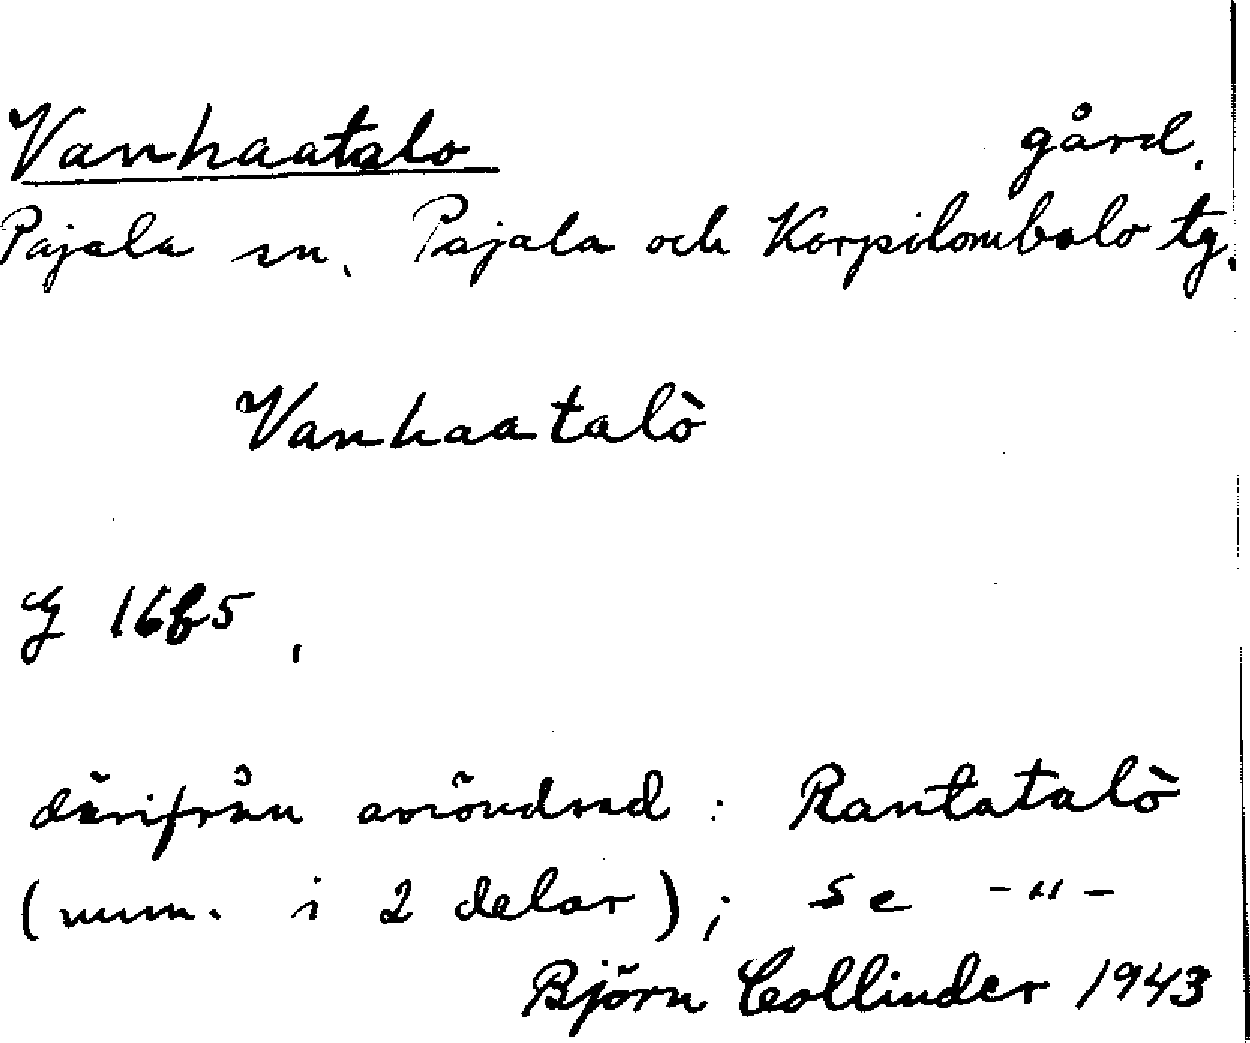 Vanhaatalo gård.
Pajala sn. Pajala och Korpilombolo tg.
Vanhaatalò
G 16b5,
därifrån avsöndrad: Rantatalò
(num. i 2 delar); se -"-
Björn Collinder 1943